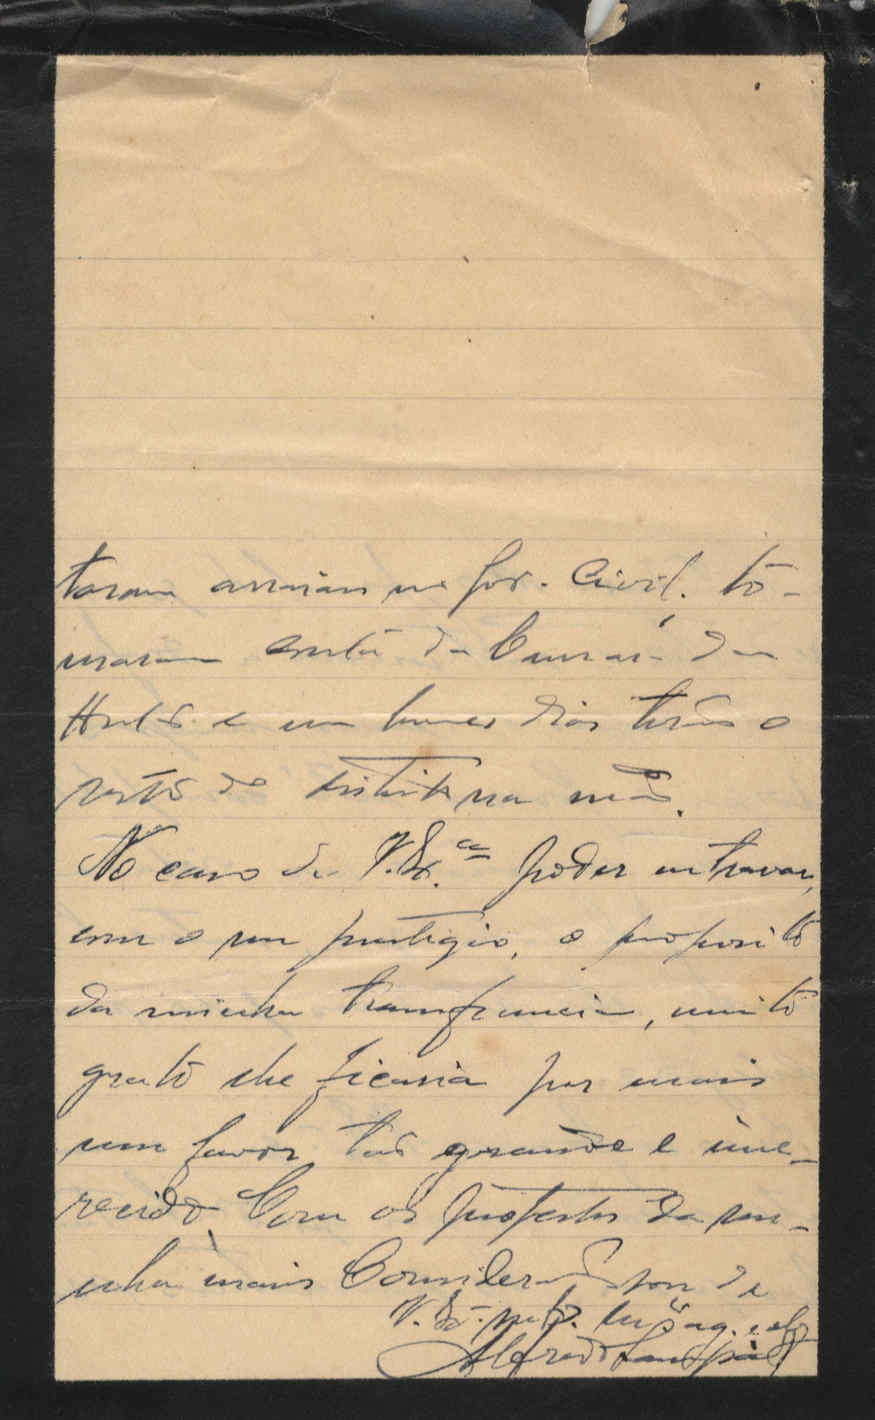 taram arraiais no Gov. Civil. to-
maram conta da Camara da
Horta e em breves dias terão o
resto do districto na mão.
No caso de V. Ex.cia poder entravar,
com o seu prestigio, o proposito
da minha transferencia, muito
grato lhe ficaria por mais
um favor tão grande e ime-
recido. Com os protestos da mi-
nha maior Consideração sou de
V. Ex.cia
Alfredo Sampaio